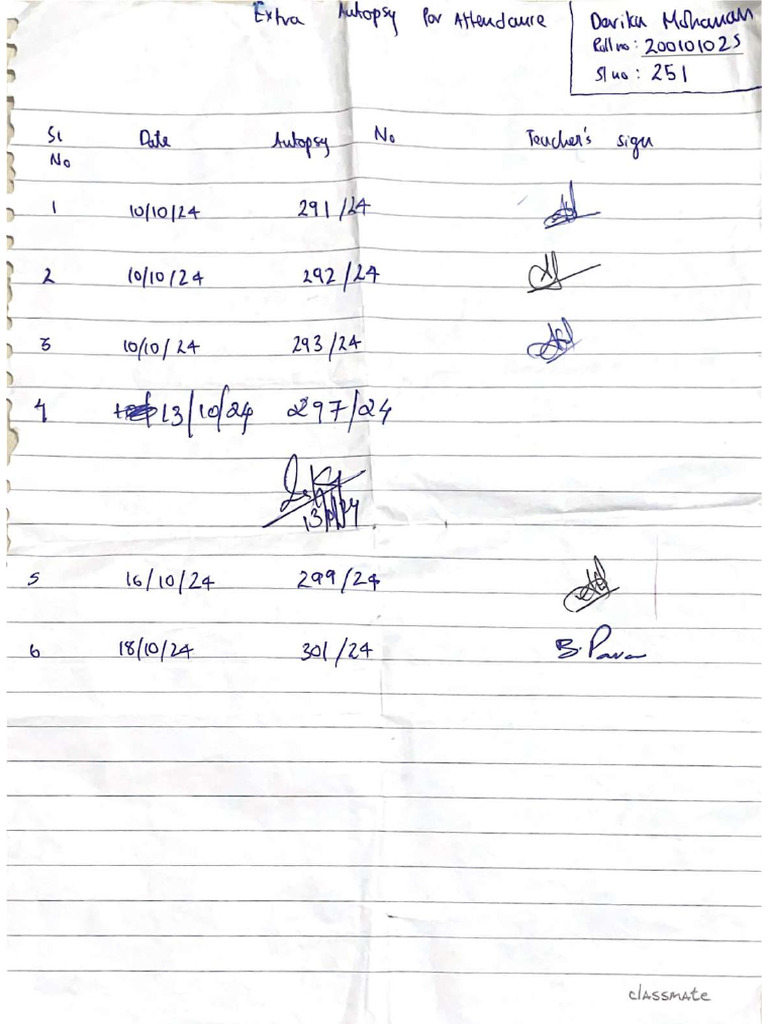 Extra Autopsy for Attendance
Darika Mohanan
Roll no: 200101025
Sl no: 251
Sl No Date Autopsy No Teacher's sign
1 10/10/24 291/24
2 10/10/24 292/24
3 10/10/24 293/24
4 13/10/24 297/24
5 16/10/24 299/24
6 18/10/24 301/24
classmate